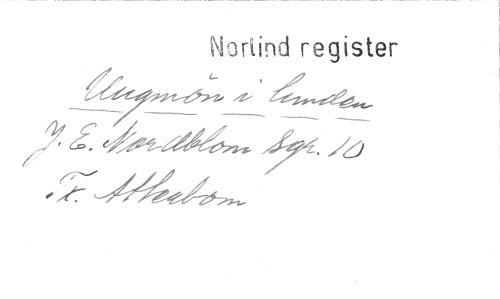 Norlind register
Ungmön i lunden
J. E. Nordblom Sgr. 10
Tx. Atterbom